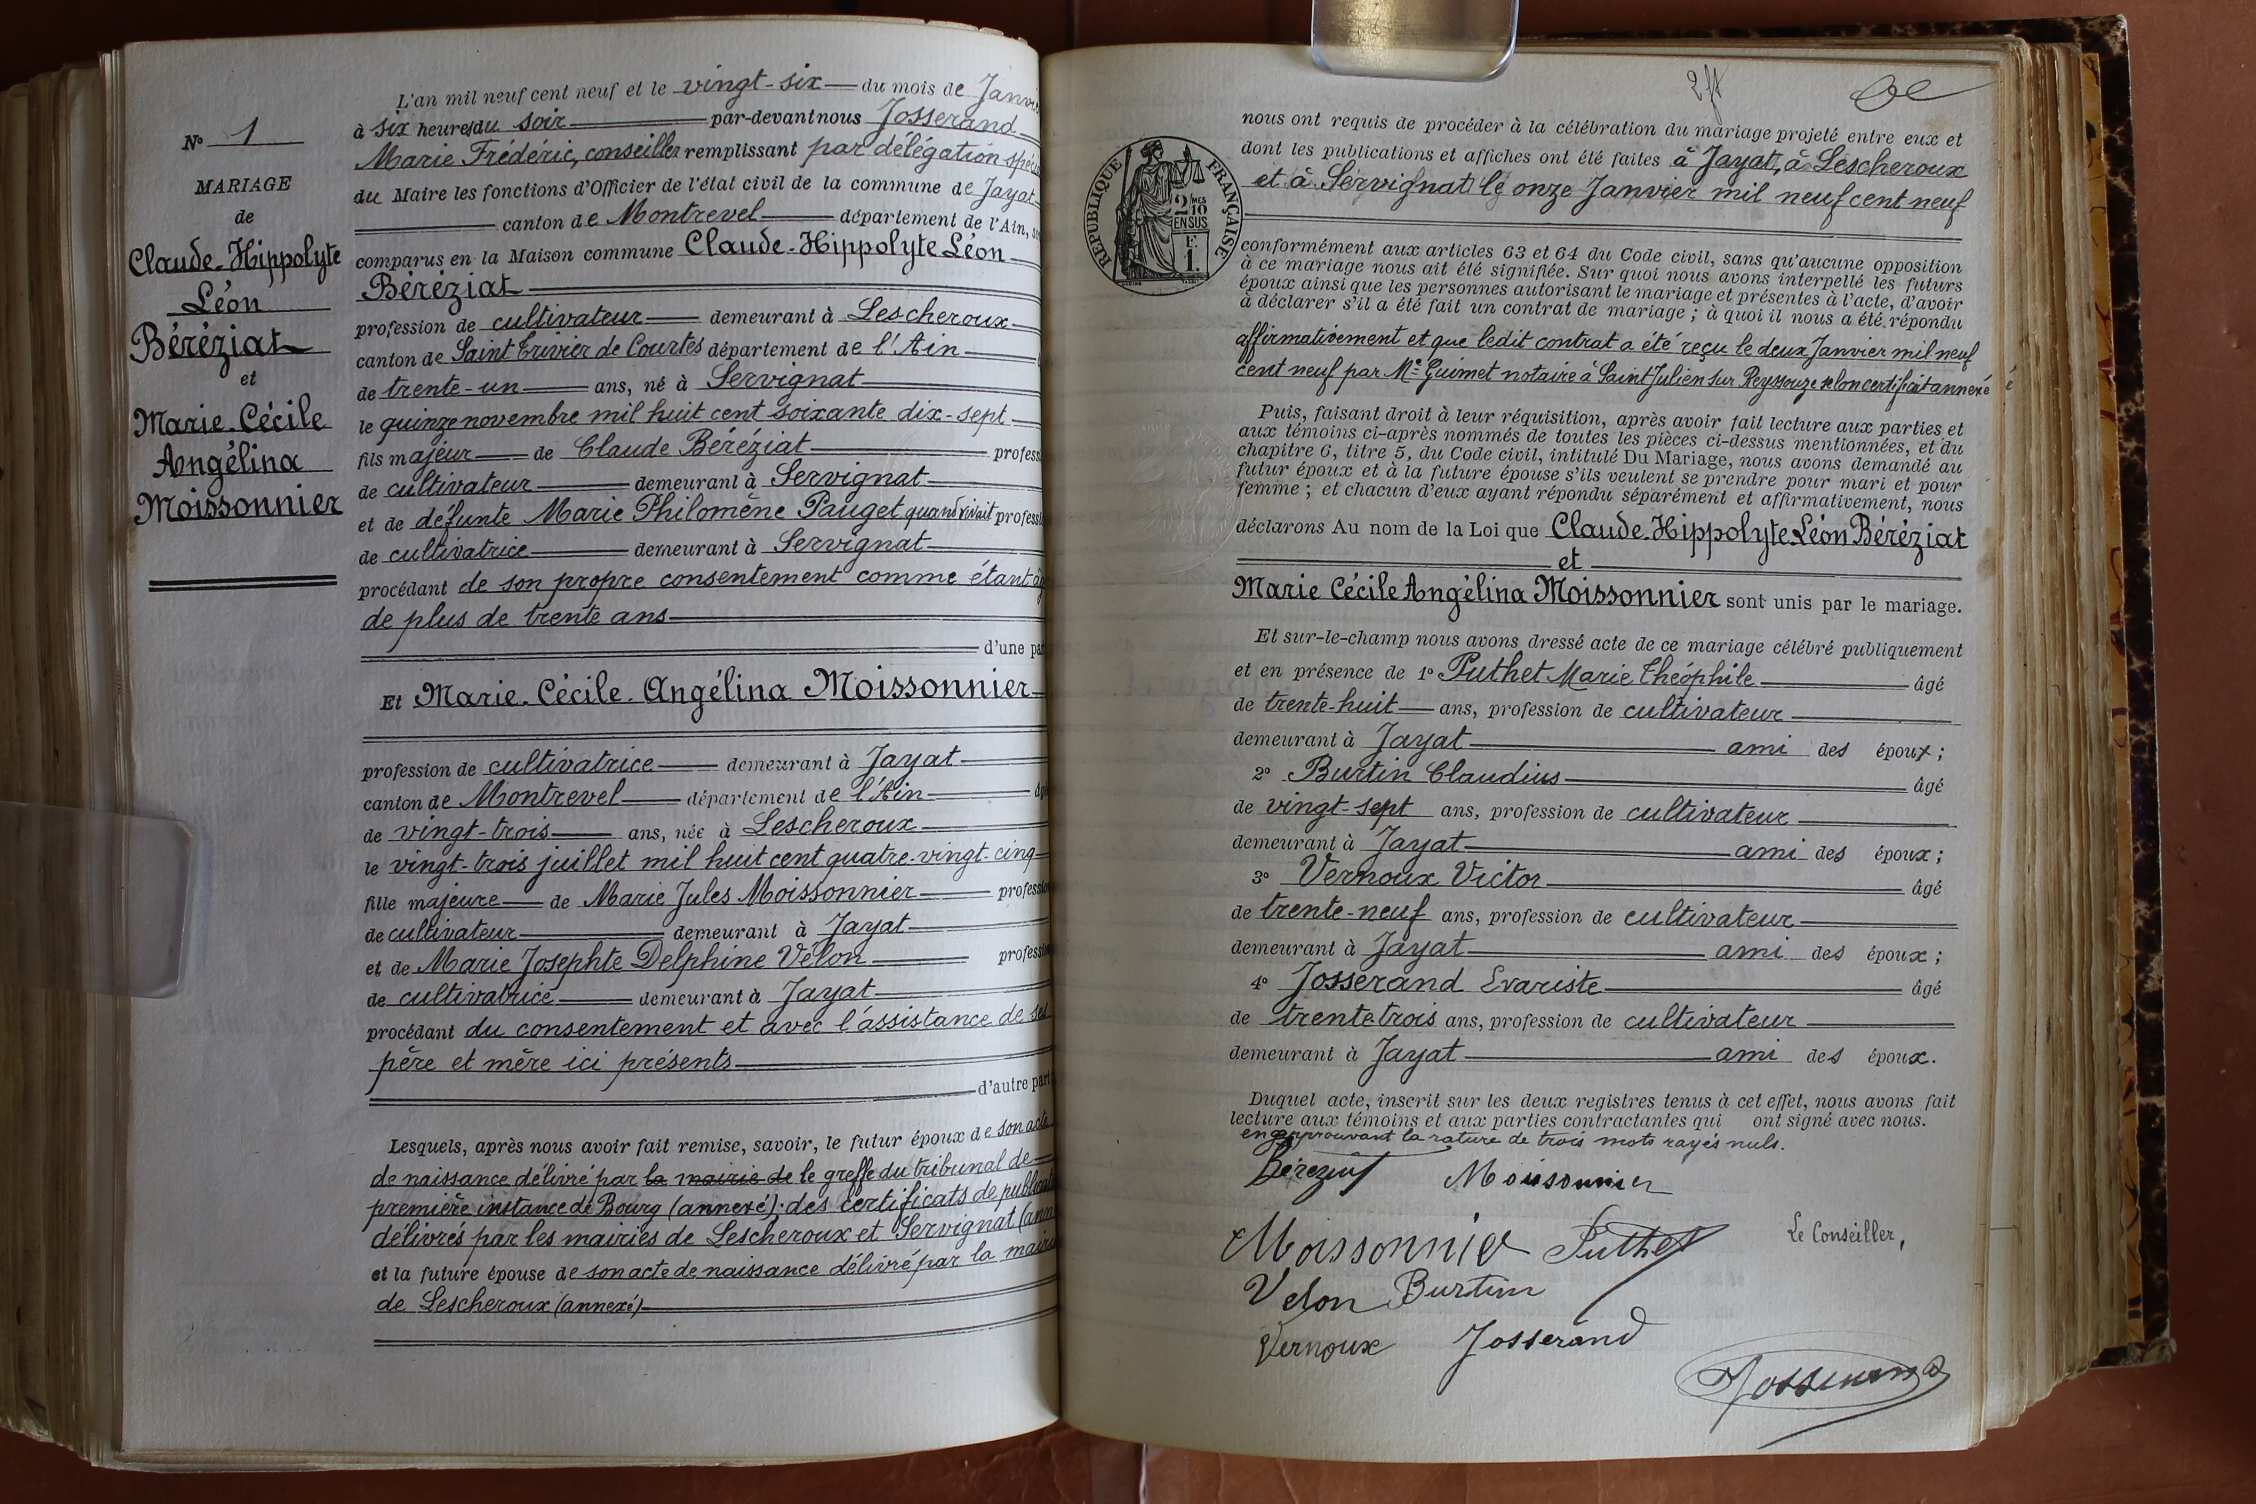 N° 1
MARIAGE
de
Claude-Hippolyte
Léon
Béréziat
et
Marie-Cécile
Angélina
Moissonnier
L'an mil neuf cent neuf et le vingt-six du mois de Janvie
à six heures du soir par-devant nous Josserand
Marie Frédéric, conseiller remplissant par délégation spéci
du Maire les fonctions d'Officier de l'état civil de la commune de Jayat
canton de Montrevel département de l'Ain, so
comparus en la Maison commune Claude-Hippolyte Léon
Béréziat
profession de cultivateur demeurant à Lescheroux
canton de Saint Trivier de Courtes département de l'Ain
de trente-un ans, né à Servignat
le quinze novembre mil huit cent soixante dix-sept
fils majeur de Claude Béréziat profess
de cultivateur demeurant à Servignat
et de défunte Marie Philomène Pauget quand vivait professi
de cultivatrice demeurant à Servignat
procédant de son propre consentement comme étant âg
de plus de trente ans
d'une par
Et Marie-Cécile-Angélina Moissonnier
profession de cultivatrice demeurant à Jayat
canton de Montrevel département de l'Ain âgé
de vingt-trois ans, née à Lescheroux
le vingt-trois juillet mil huit cent quatre-vingt-cinq
fille majeure de Marie Jules Moissonnier profession
de cultivateur demeurant à Jayat
et de Marie Josephte Delphine Vélon profession
de cultivatrice demeurant à Jayat
procédant du consentement et avec l'assistance de ses
père et mère ici présents
d'autre part
Lesquels, après nous avoir fait remise, savoir, le futur époux de son acte
de naissance délivré par la mairie de le greffe du tribunal de
première instance de Bourg (annexé); des certificats de publicat
délivrés par les mairies de Lescheroux et Servignat (ann
et la future épouse de son acte de naissance délivré par la mairie
de Lescheroux (annexé)
2 ft
RÉPUBLIQUE FRANÇAISE
2/10 MES
EN SUS
F.
1.
nous ont requis de procéder à la célébration du mariage projeté entre eux et
dont les publications et affiches ont été faites à Jayat, à Lescheroux
et à Servignat le onze Janvier mil neuf cent neuf
conformément aux articles 63 et 64 du Code civil, sans qu'aucune opposition
à ce mariage nous ait été signifiée. Sur quoi nous avons interpellé les futurs
époux ainsi que les personnes autorisant le mariage et présentes à l'acte, d'avoir
à déclarer s'il a été fait un contrat de mariage; à quoi il nous a été répondu
affirmativement et que ledit contrat a été reçu le deux Janvier mil neuf
cent neuf par Me Guimet notaire à Saint Julien sur Reyssouze selon certificat annexé
Puis, faisant droit à leur réquisition, après avoir fait lecture aux parties et
aux témoins ci-après nommés de toutes les pièces ci-dessus mentionnées, et du
chapitre 6, titre 5, du Code civil, intitulé Du Mariage, nous avons demandé au
futur époux et à la future épouse s'ils veulent se prendre pour mari et pour
femme; et chacun d'eux ayant répondu séparément et affirmativement, nous
déclarons Au nom de la Loi que Claude-Hippolyte Léon Béréziat
et
Marie Cécile Angélina Moissonnier sont unis par le mariage.
Et sur-le-champ nous avons dressé acte de ce mariage célébré publiquement
et en présence de 1° Puthet Marie Théophile âgé
de trente-huit ans, profession de cultivateur
demeurant à Jayat ami des époux;
2° Burtin Claudius âgé
de vingt-sept ans, profession de cultivateur
demeurant à Jayat ami des époux;
3° Vernoux Victor âgé
de trente-neuf ans, profession de cultivateur
demeurant à Jayat ami des époux;
4° Josserand Evariste âgé
de trente trois ans, profession de cultivateur
demeurant à Jayat ami des époux.
Duquel acte, inscrit sur les deux registres tenus à cet effet, nous avons fait
lecture aux témoins et aux parties contractantes qui ont signé avec nous.
en approuvant la rature de trois mots rayés nuls.
Béréziat Moissonnier
Moissonnier Puthet
Le Conseiller,
Velon Burtin
Vernoux Josserand
Josserand